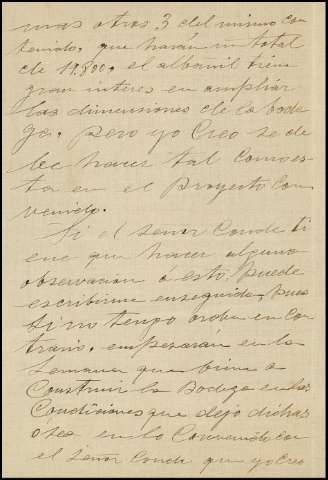 mas otras 3 del mismo con
tenido, que harán un total
de 18,800, el albanil tiene
gran interes en ampliar
las dimensiones de la bode
ga, pero yo Creo se de
be hacer tal como es
ta en el Proyecto Con
venido.
Si el señor Conde ti
ene que hacer alguna
observacion á esto, puede
escribirme enseguida, pues
si no tengo orden en con
trario, empesaran en la
semana que biene a
Construir la Bodega en las
Condiciones que dejo dichas
ó sea en lo Convenido con
el Señor Conde que yo Creo